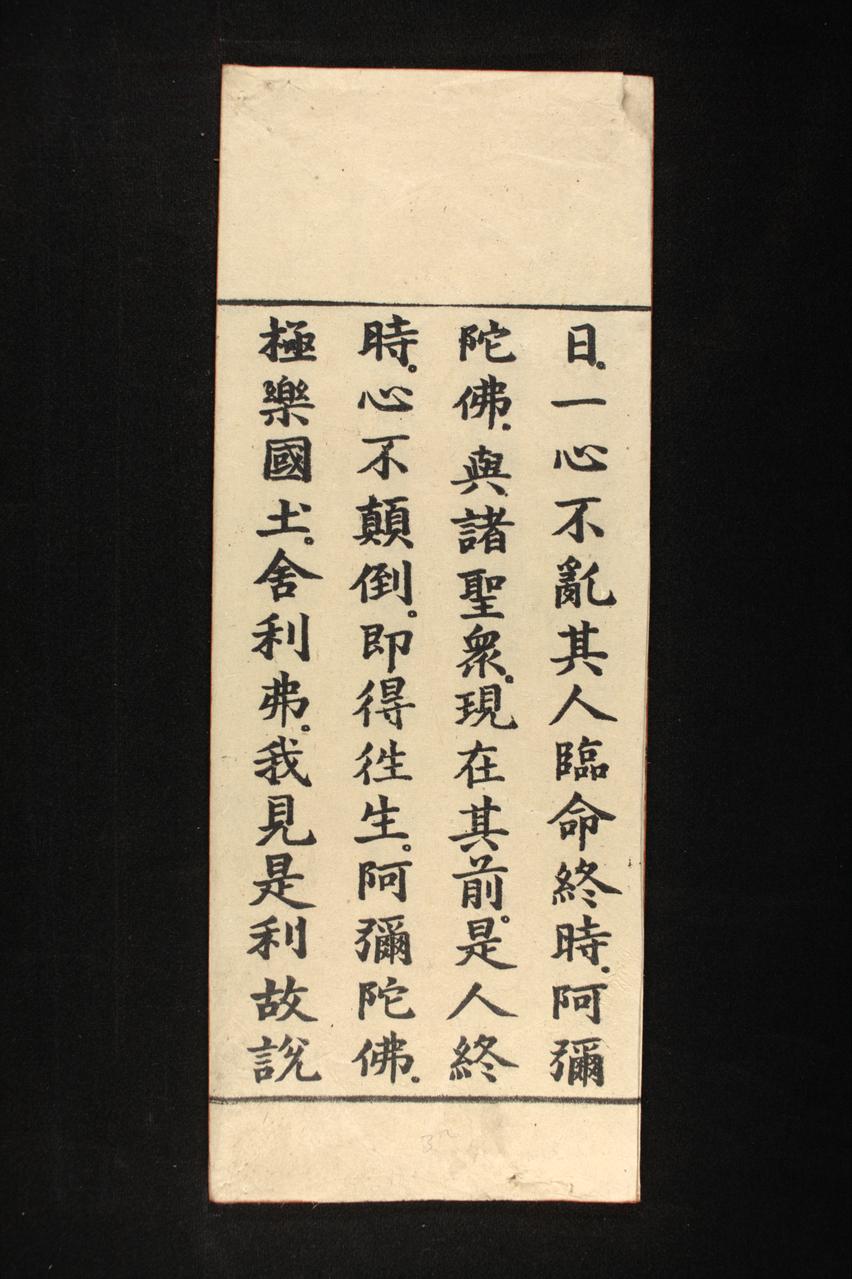 日。一心不亂其人臨命終時。阿彌
陀佛。與諸聖衆。現在其前。是人終
時。心不顛倒。即得徃生。阿彌陀佛。
極樂國土。舍利弗。我見是利故說
32